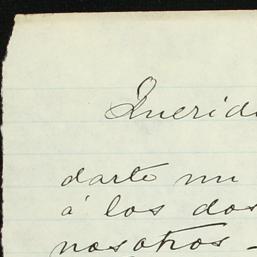 Querid
darte mi
á los dos
nosotros -